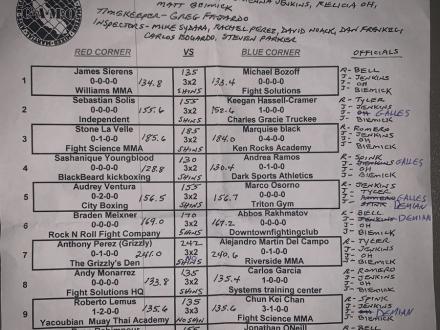 MATT BOIMICK
TIMEKEEPER - GREG FAJARDO
INSPECTORS - MIKE SYDHA, RACHEL PEREZ, DAVID NOLK, DAN FRENKELI
CARLOS EDUARDO, STEVEN PARKER
RED CORNER VS BLUE CORNER OFFICIALS
1 James Sierens 135 Michael Bozoff R-BELL
0-0-0-0 134.8 3x2 133.4 0-0-0-0 J-JENKINS
J-OH
Williams MMA SHINS Fight Solutions J-BIEMICK
2 Sebastian Solis 155 Keegan Hassell-Cramer R-TYLER
0-0-0-0 155.6 3x2 152.6 1-0-0-0 J-JENKINS
J-OH GALLES
Independent SHINS Charles Gracie Truckee J-BIEMICK
3 Stone La Velle 185 Marquise black R-ROMERO
0-1-0-0 185.6 3x2 184.0 0-4-0-0 J-JENKINS
J-OH
Fight Science MMA SHINS Ken Rocks Academy J-BIEMICK
4 Sashanique Youngblood 130 Andrea Ramos R-SPINK
0-0-0-0 128.8 3x2 130.4 0-1-0-0 GALLES
J-OH
BlackBeard kickboxing SHINS Dark Sports Athletics J-BIEMICK
5 Audrey Ventura 155 Marco Osorno R-JENKINS
0-2-0-0 156.5 3x2 156.7 0-0-0-0 J-TYLER
J-GALLES
City Boxing SHINS Triton Gym DEMIAN
6 Braden Meixner 170 Abbos Rakhmatov R-BELL
0-0-0-0 169.0 3x2 167.2 0-0-0-0 J-JENKINS DEMIAN
J-OH
Rock N Roll Fight Company SHINS Downtownfightingclub J-BIEMICK
7 Anthony Perez (Grizzly) 242 Alejandro Martin Del Campo R-TYLER
0-1-0-0 241.0 3x2 240.6 0-1-0-0 J-JENKINS
J-OH
The Grizzly's Den SHINS Riverside MMA J-BIEMICK
8 Andy Monarrez 135 Carlos Garcia R-ROMERO
0-0-0-0 133.8 3x2 135.4 0-1-0-0 J-JENKINS
J-OH
Fight Solutions HQ SHINS Systems training center J-BIEMICK
9 Roberto Lemus 135 Chun Kei Chan R-SPINK
1-2-0-0 135.6 3x3 133.6 3-1-0-0 J-JENKINS
J-OH DEMIAN
Yacoubian Muay Thai Academy NO SHIN Fight Science MMA J-BIEMICK
155 Jonathan ONeill R-BELL